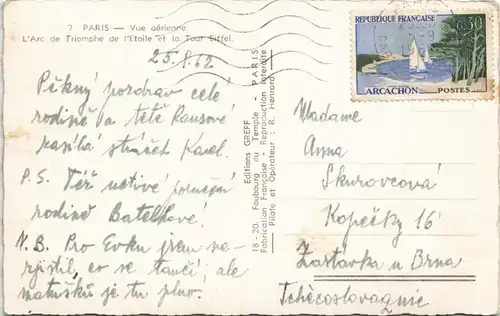 7 PARIS — Vue aérienne.
L'Arc de Triomphe de l'Etoile et la Tour Eiffel.
25.8.62
Pěkný pozdrav celé
rodině a tetě Rausové
zasílá strýček Karel.
P.S. Též uctivé poručení
rodině Batelkové!
N.B. Pro Evku jsem
zjistil, co se tančí; ale
matušků je tu plno.
Editions GREFF
18-20, Faubourg du Temple - PARIS
Fabrication Française - Reproduction interdite
Pilote et Opérateur : R. Henrard
REPUBLIQUE FRANÇAISE
0,30
ARCACHON
POSTES
Madame
Anna
Škurovcová
Kopečky 16
Zastávka u Brna
Tchécoslovaquie